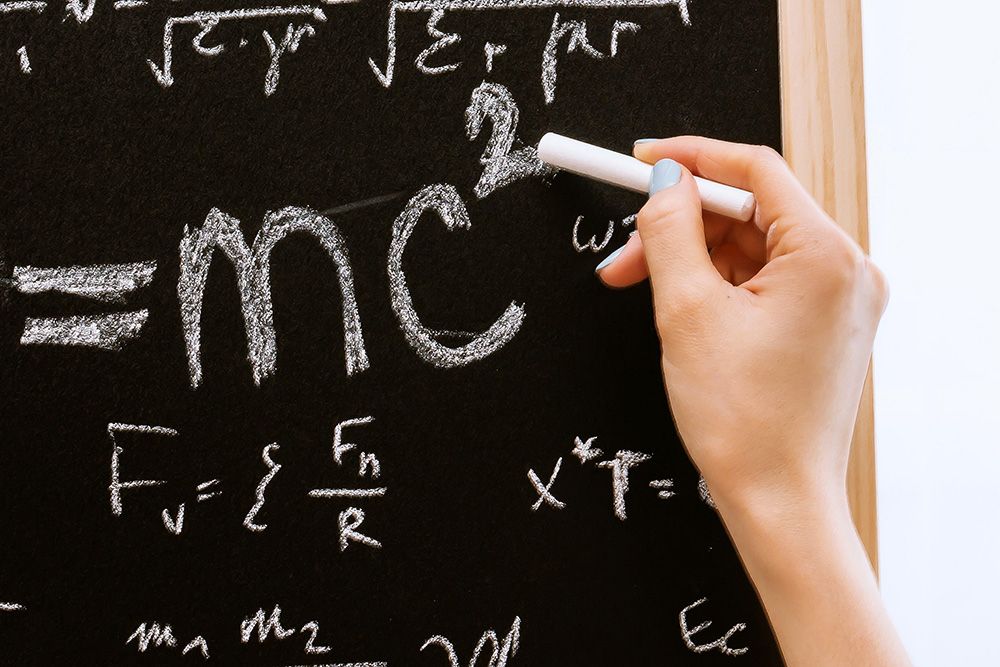 √εr μr √εr μr
1
= mc²
ω
F_v = { F_n / R
x*T =
m₁ m₂
E_c